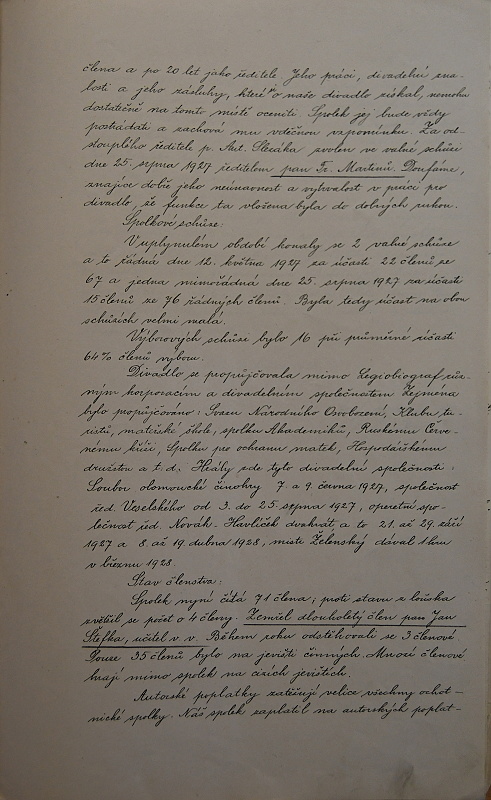 člena a po 20 let jako ředitele. Jeho práci, divadelní zna-
losti a jeho zásluhy, které o naše divadlo získal, nemohu
dostatečně na tomto místě oceniti. Spolek jej bude vždy
postrádati a zachová mu vděčnou vzpomínku. Za od-
stouplého ředitele p. Ant. zvolen ve valné schůzi
dne 25. srpna 1927 ředitelem pan Fr. Martinů. Doufáme,
znajíce dobře jeho neúnavnost a vytrvalost v práci pro
divadlo, že funkce ta vložena byla do dobrých rukou.
Spolkové schůze:
V uplynulém období konaly se 2 valné schůze
a to řádná dne 12. května 1927 za účasti 22 členů ze
67 a jedna mimořádná dne 25. srpna 1927 za účasti
15 členů ze 76 řádných členů. Byla tedy účast na obou
schůzích velmi malá.
Výborových schůzí bylo 16 při průměrné účasti
64% členů výboru.
Divadlo se propůjčovala mimo Legiobiograf růz-
ným korporacím a divadelním společnostem. Zejména
bylo propůjčováno: Svazu Národního Osvobození, Klubu tu-
ristů, mateřské škole, spolku Akademiků, Ruskému Červe-
nému kříži, Spolku pro ochranu matek, Hospodářskému
družstvu a t. d. Hrály zde tyto divadelní společnosti:
Soubor olomoucké činohry 7 a 9. června 1927, společnost
řed. Veselského od 3. do 25. srpna 1927, operetní spo-
lečnost řed. Novák - Havlíček dvakrát a to 21. až 29. září
1927 a 8. až 19. dubna 1928, mistr Želenský dával 1 hru
v březnu 1928.
Stav členstva:
Spolek nyní čítá 71 člena; proti stavu z loňska
zvětšil se počet o 4 členy. Zemřel dlouholetý člen pan Jan
Štefka, učitel v. v. Během roku odstěhovali se 3 členové
Pouze 35 členů bylo na jevišti činných. Mnozí členové
hrají mimo spolek na cizích jevištích.
Autorské poplatky zatěžují velice všechny ochot-
nické spolky. Náš spolek zaplatil na autorských poplat-